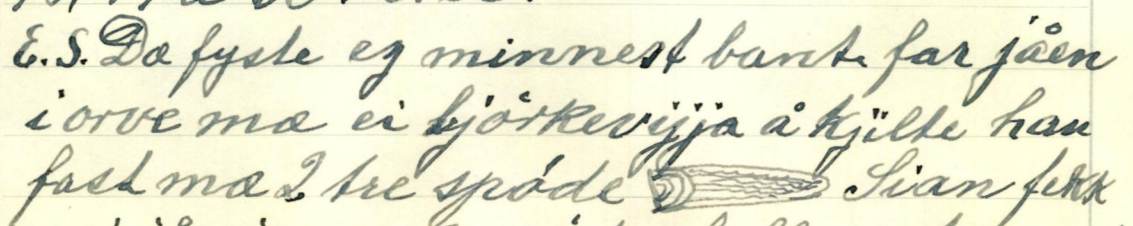 E. S. Dæ fyste eg minnest bant. far jåen
i orve mæ ei bjørkevijja å kjilte han
fast mæ 2 tre spóde Sian fekk